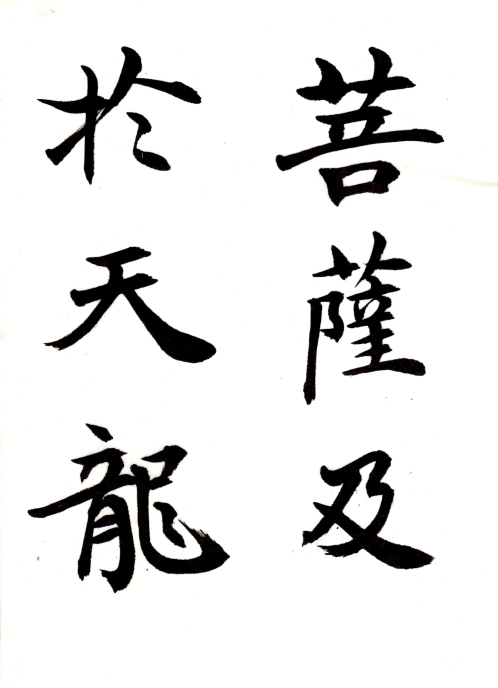 菩薩及
於天龍